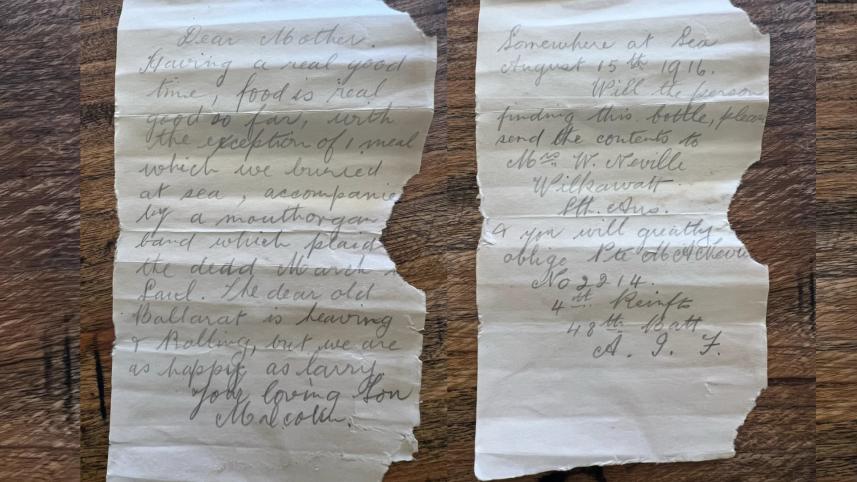 Dear Mother.
Having a real good
time, food is real
good so far, with
the exception of 1 meal
which we buried
at sea, accompanie
by a mouthorgan
band which plaid
the dead March
Saul. The dear old
Ballarat is heaving
& Rolling, but we are
as happy as larry.
Your loving Son
Malcolm.
Somewhere at Sea
August 15th 1916.
Will the person
finding this bottle, pleas
send the contents to
Mrs W. Neville
Wilkawatt
Sth. Aus.
& you will greatly
oblige Pte
No 2214.
4th Reinft.
48th Batt
A. I. F.